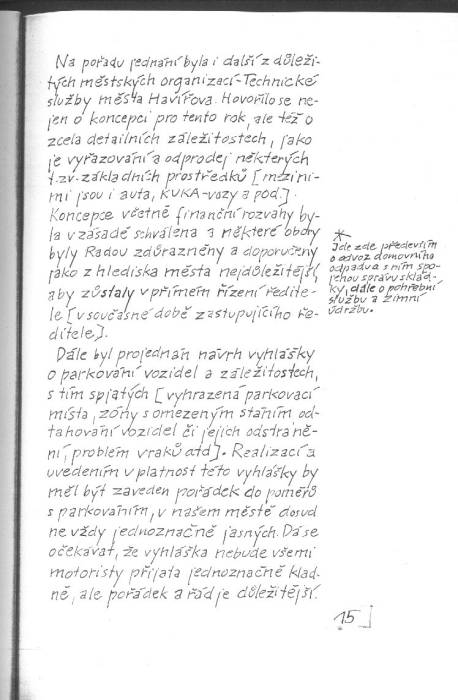 Na pořadu jednání byla i další z důleži-
tých městských organizací-Technické
služby města Havířova. Hovořilo se ne-
jen o koncepci pro tento rok, ale též o
zcela detailních záležitostech, jako
je vyřazování a odprodej některých
t.zv. základních prostředků [mezi ni-
mi jsou i auta, KUKA-vozy a pod.].
Koncepce včetně finanční rozvahy by-
la v zásadě schválena a některé obory
byly Radou zdůrazněny a doporučeny
jako z hlediska města nejdůležitější,
aby zůstaly v přímém řízení ředite-
le [v současné době zastupujícího ře-
ditele].
Dále byl projednán návrh vyhlášky
o parkování vozidel a záležitostech,
s tím spjatých [vyhrazená parkovací
místa, zóny s omezeným stáním od-
tahování vozidel či jejich odstraně-
ní, problém vraků atd]. Realizací a
uvedením v platnost této vyhlášky by
měl být zaveden pořádek do poměrů
s parkováním, v našem městě dosud
ne vždy jednoznačně jasných. Dá se
očekávat, že vyhláška nebude všemi
motoristy přijata jednoznačně klad-
ně, ale pořádek a řád je důležitější.
*
Jde zde především
o odvoz domovního
odpadu a s ním spo-
jenou správu sklád-
ky, dále o pohřební
službu a zimní
údržbu.
15